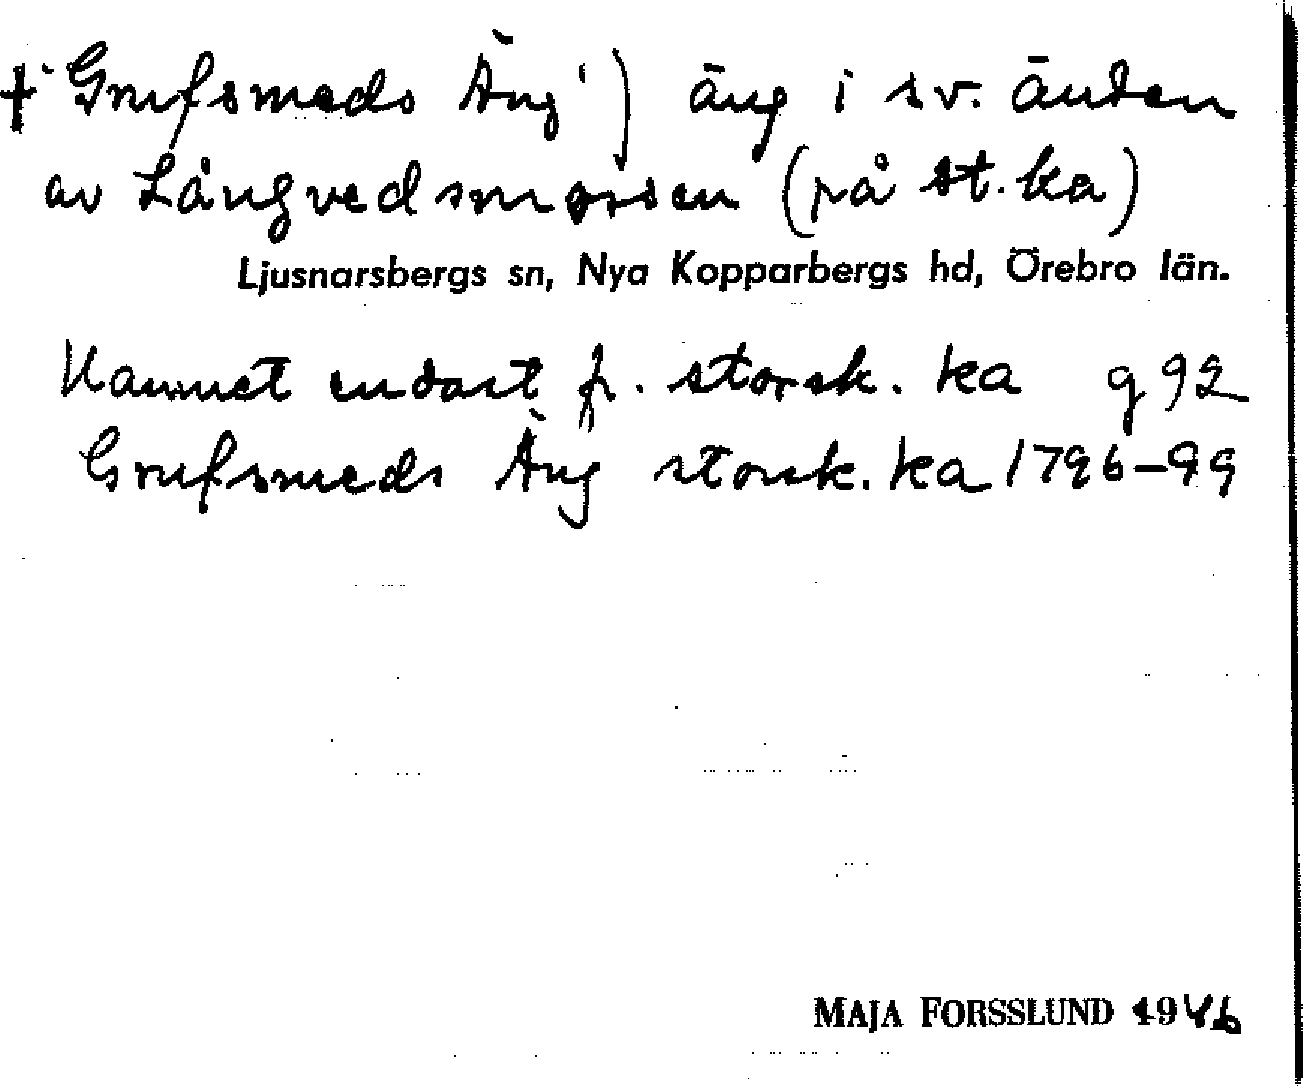 † 'Grufsmeds Äng') äng i sv. änden
av Långvedsmossen (på st. ka)
Ljusnarsbergs sn, Nya Kopparbergs hd, Örebro län.
Namnet endast fr. storsk. ka g 92
Grufsmeds Äng storsk. ka 1796–99
MAJA FORSSLUND 1946